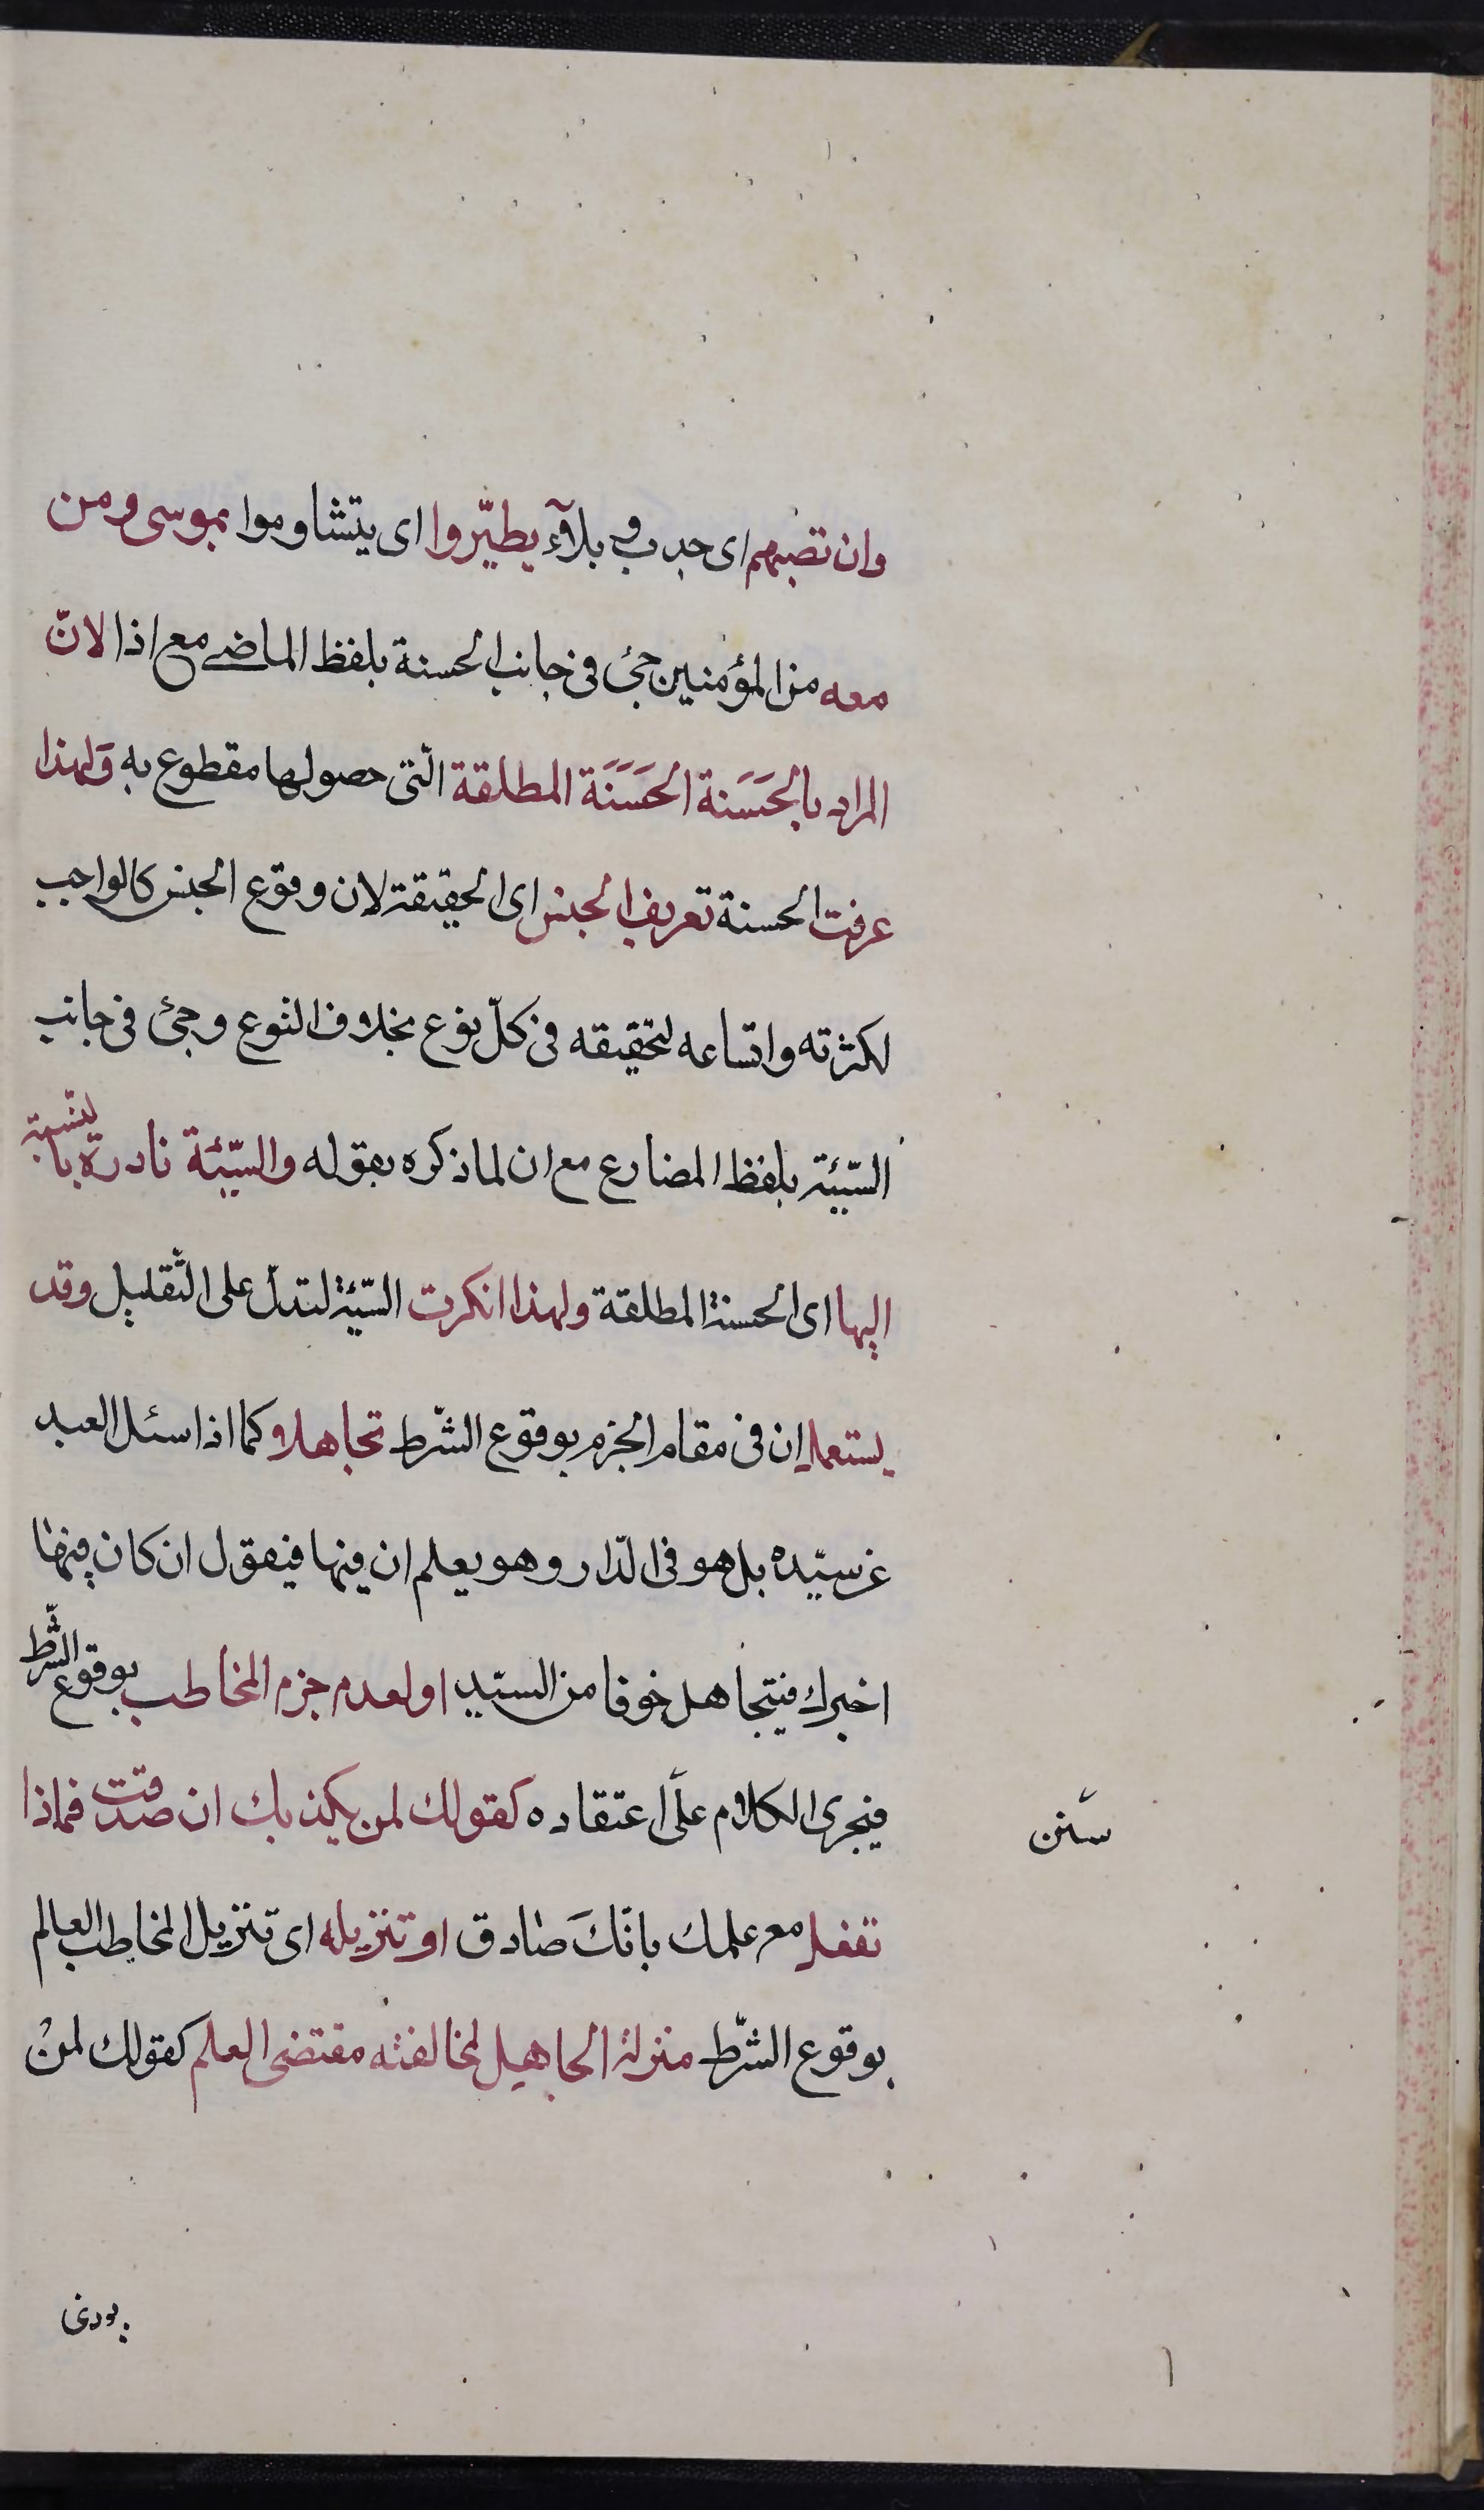 وان تصبهم اى جدب و بلآء يطيّروا اى يتشاوموا بموسى ومن
معه من المؤمنين جئ فى جانب الحسنة بلفظ الماضى مع اذا لانّ
المراد بالحَسَنة الحَسَنَة المطلقة الّتى حصولها مقطوع به وَلهذا
عرفت الحسنة تعريف الجنس اى الحقيقة لان وقوع الجنس كالواجب
لكثرته واتساعه لتحقيقه فى كلّ نوع بخلاف النوع وجئ فى جانب
السّيئة بلفظ المضارع مع ان لما ذكره بقوله والسّيّئة نادرة بالنّسبة
اليها اى الحسنة المطلقة ولهذا انكرت السّيّئة لتدلّ على التّقليل وقد
يستعمل ان فى مقام الجزم بوقوع الشّرط تجاهلا كما اذا سئل العبد
عن سيّده بل هو فى الدّار وهو يعلم ان فيها فيقول ان كان فيها
اخبرك فيتجاهل خوفا من السيّد او لعدم جزم المخاطب بوقوع الشّرط
فيجرى الكلام على اعتقاده كقولك لمن يكذبك ان صدقت فماذا
سنن
تفعل مع علمك بانّكَ صادق او تنزيله اى تنزيل المخاطب العالم
بوقوع الشّرط منزلة الجاهيل لمخالفته مقتضى العلم كقولك لمنْ